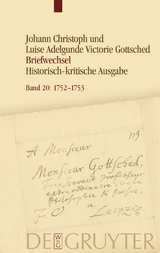 Johann Christoph und
Luise Adelgunde Victorie Gottsched
Briefwechsel
Historisch-kritische Ausgabe
Band 20: 1752–1753
A Monsieur
Monsieur Gottsched,
Professeur
extraordinaire
Philosophie & Poesie,
à
Leipzig
DE GRUYTER